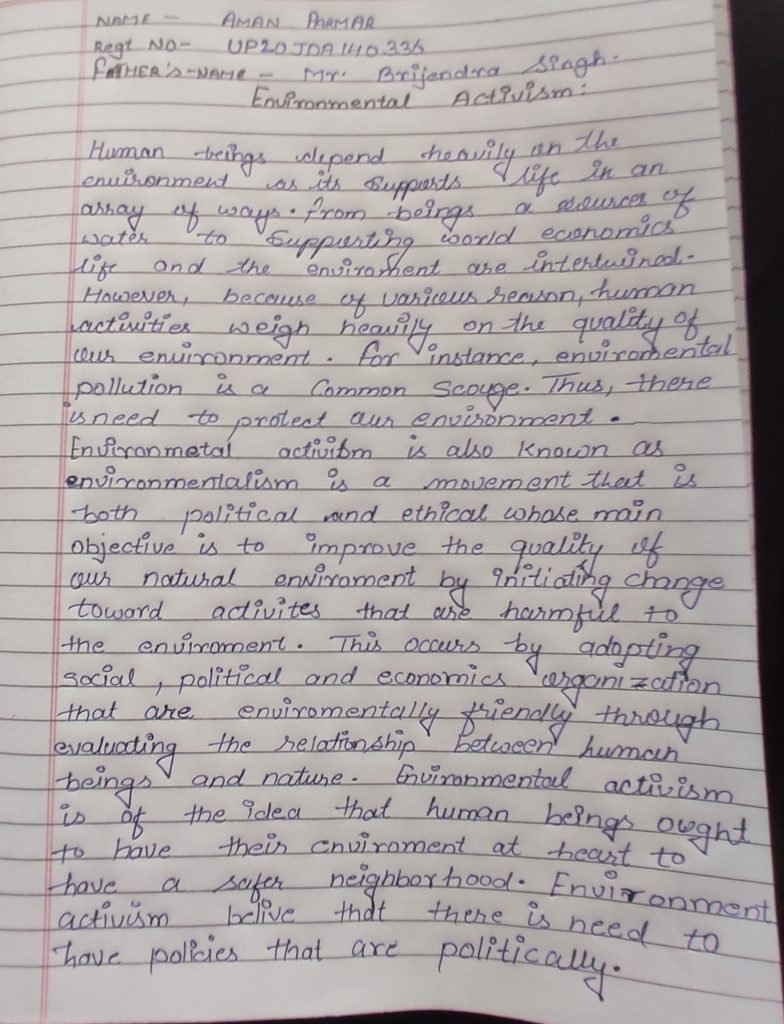 NAME - AMAN PARMAR
Regt NO- UP20JDA140336
FATHER'S-NAME - Mr. Brijendra Singh.
Environmental Activism:
Human beings depend heavily on the
environment as its supports life in an
array of ways. From beings a sources of
water to supporting world economics
life and the enviroment are intertwined.
However, because of various reason, human
activities weigh heavily on the quality of
our environment. For instance, enviromental
pollution is a common scouge. Thus, there
is need to protect our environment.
Environmetal activism is also known as
environmentalism is a movement that is
both political and ethical whose main
objective is to improve the quality of
our natural enviroment by initiating change
toward activites that are harmful to
the enviroment. This occurs by adopting
social, political and economics organization
that are enviromentally friendly through
evaluating the relationship between human
beings and nature. Environmental activism
is of the idea that human beings ought
to have their enviroment at heart to
have a safer neighborhood. Environment
activism belive that there is need to
have policies that are politically.